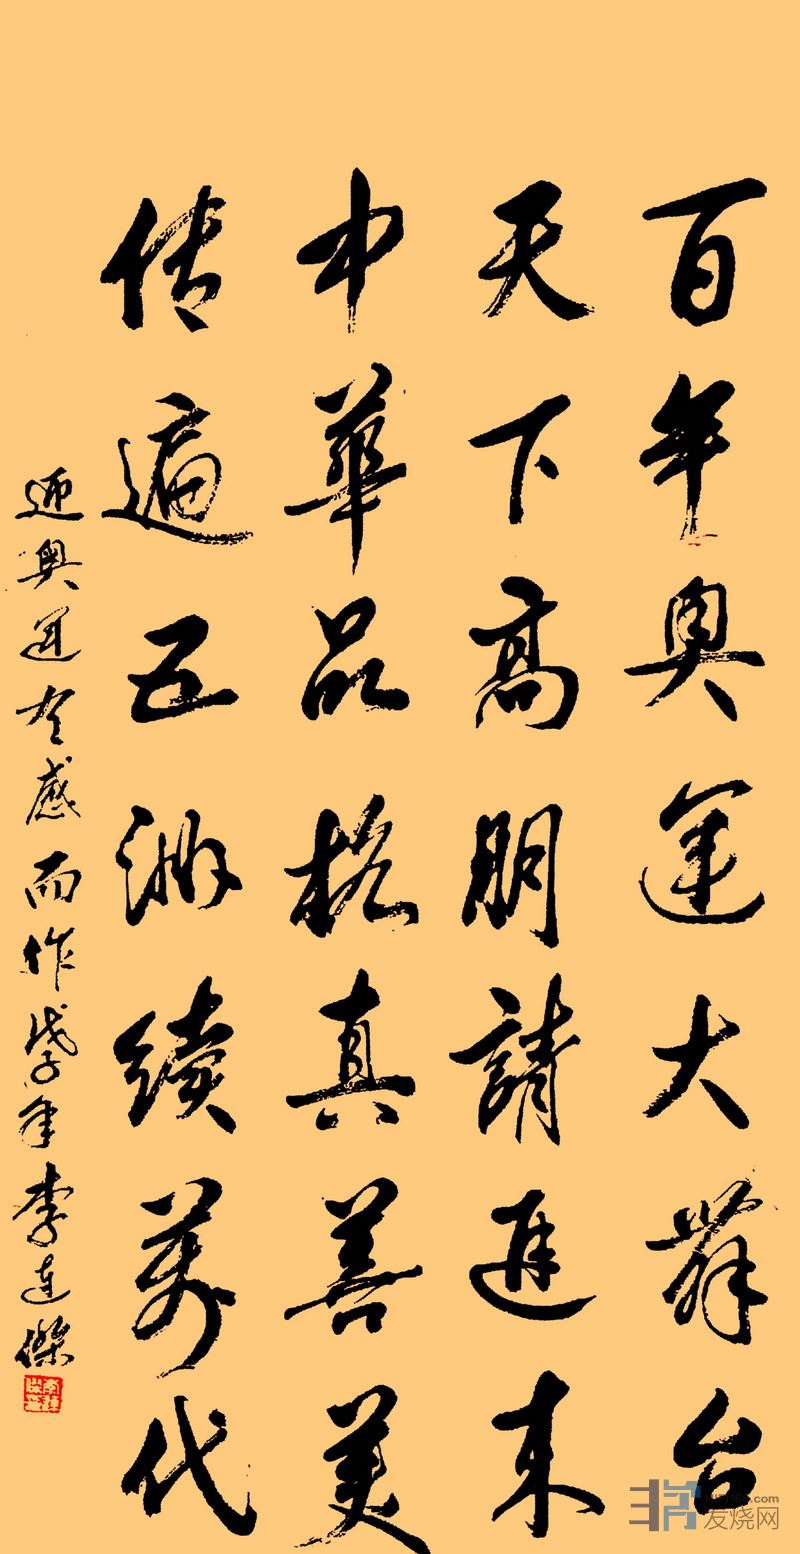 百年奥運大舞台
天下高朋請進来
中華品格真善美
传遍五洲續萬代
迎奥運有感而作戊子年李連傑
发烧网